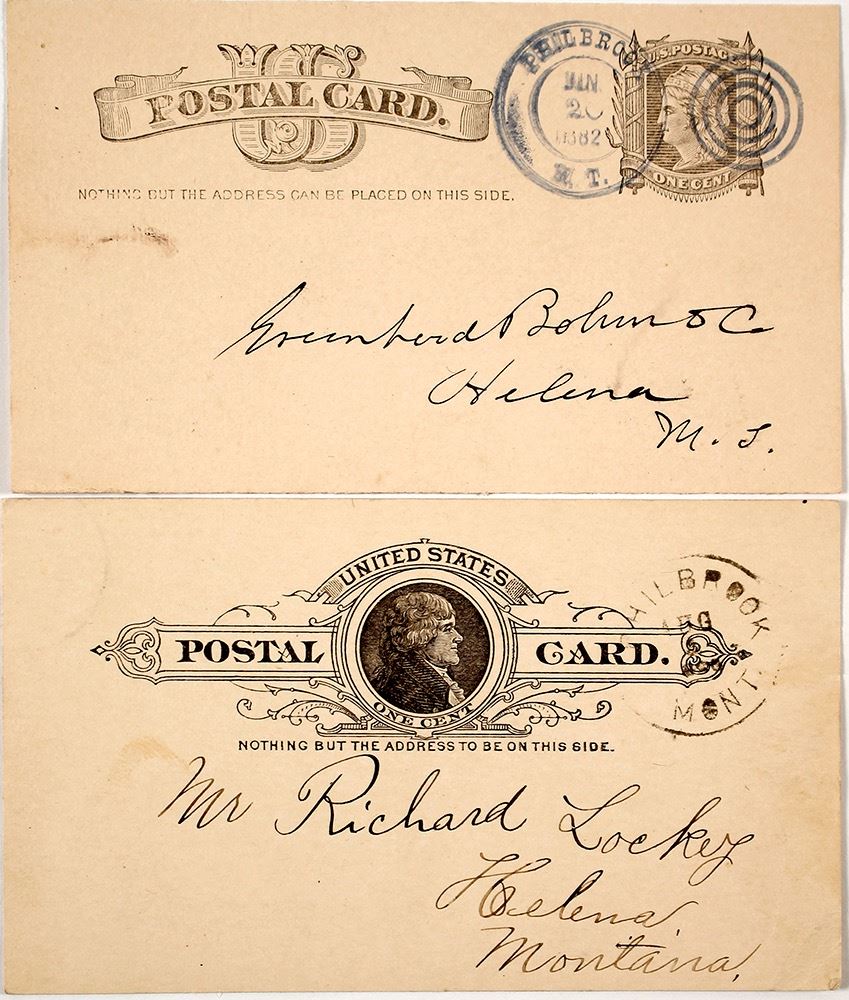 US
POSTAL CARD.
NOTHING BUT THE ADDRESS CAN BE PLACED ON THIS SIDE.
PHILBROO
JAN
1882
M. T.
U.S. POSTAGE
ONE CENT
Greenhood Bohm & C
Helena
M. T.
UNITED STATES
POSTAL CARD.
ONE CENT
NOTHING BUT THE ADDRESS TO BE ON THIS SIDE.
PHILBROOK
MONT.
Mr Richard Lockey
Helena
Montana,